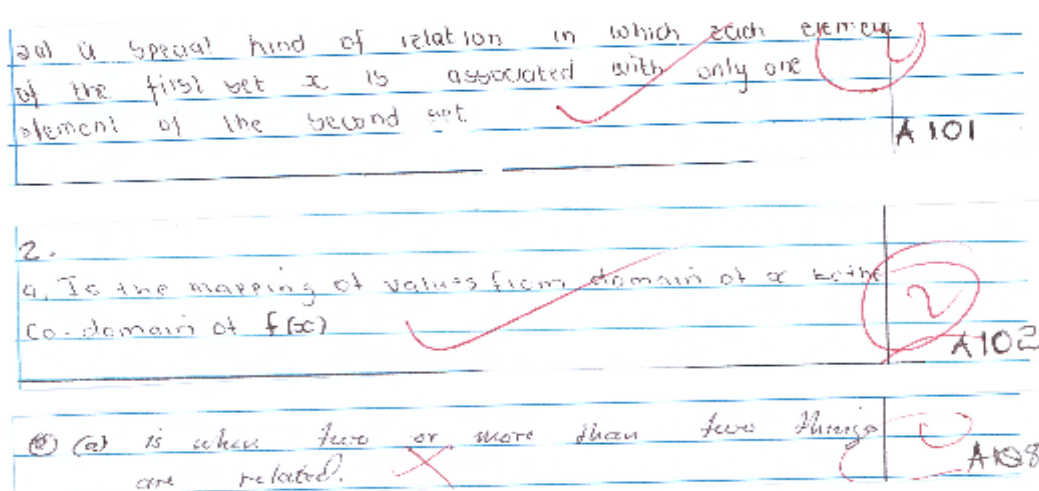 2a) is special kind of relation in which each element
of the first set x is associated with only one
element of the second set
A 101
2.
a. Is the mapping of values from domain of x to the
Co-domain of f(x)
2
A102
(a) is when two or more than two things
are related.